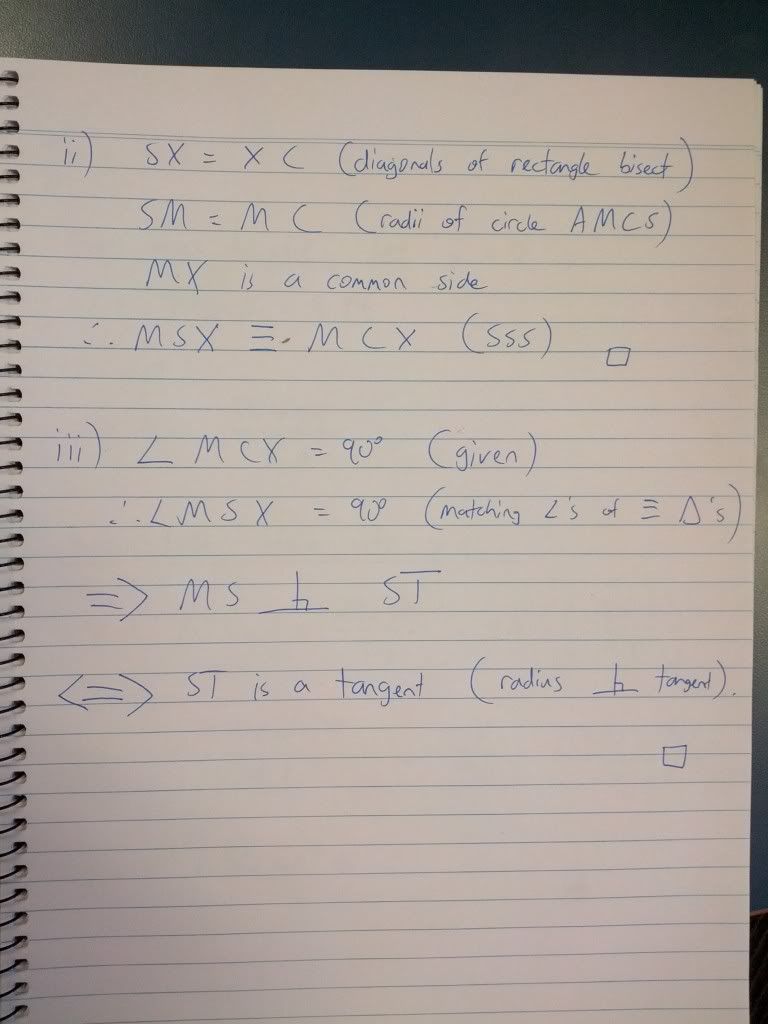 ii) SX = XC (diagonals of rectangle bisect)
SM = MC (radii of circle AMCS)
MX is a common side
∴ MSX ≡ MCX (SSS) □
iii) ∠MCX = 90° (given)
∴ ∠MSX = 90° (matching ∠'s of ≡ Δ's)
⇒ MS ⊥ ST
⇔ ST is a tangent (radius ⊥ tangent).
□